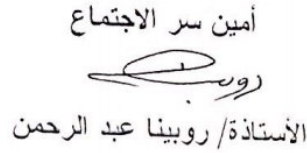 أمين سر الاجتماع
الأستاذة/ روبينا عبد الرحمن